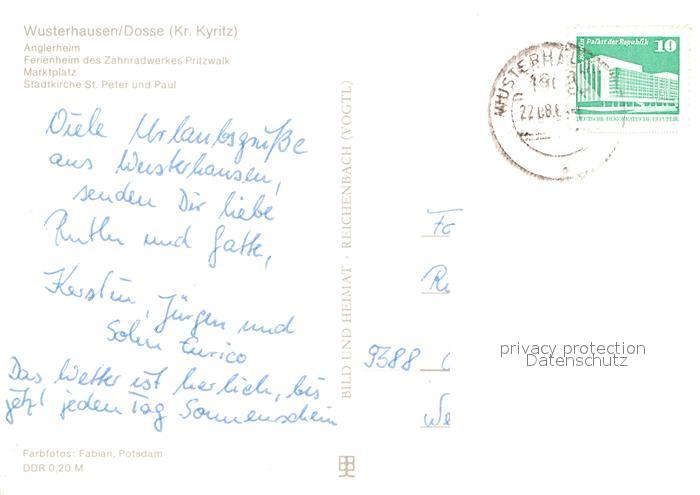 Wusterhausen/Dosse (Kr. Kyritz)
Anglerheim
Ferienheim des Zahnradwerkes Pritzwalk
Marktplatz
Stadtkirche St. Peter und Paul
Viele Urlaubsgrüße
aus Wusterhausen,
senden Dir liebe
Ruth und Gatte,
Kerstin, Jürgen und
Sohn Enrico
Das Wetter ist herlich, bis
jetzt jeden Tag Sonnenschein
Farbfotos: Fabian, Potsdam
DDR 0,20 M
BILD UND HEIMAT · REICHENBACH (VOGTL)
Palast der Republik
10
DEUTSCHE DEMOKRATISCHE REPUBLIK
WUSTERHAU
22.08.
9388
privacy protection
Datenschutz